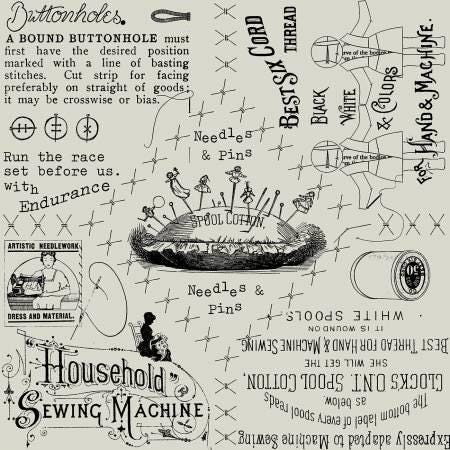 Buttonholes.
A BOUND BUTTONHOLE must
first have the desired position
marked with a line of basting
stitches. Cut strip for facing
preferably on straight of goods;
it may be crosswise or bias.
Run the race
set before us.
with
Endurance
BEST SIX CORD
THREAD
BLACK
WHITE
& COLORS
FOR HAND & MACHINE.
rve of the bodice
rve of the bodice
Needles
& Pins
SPOOL COTTON.
Needles &
Pins
ARTISTIC NEEDLEWORK
DRESS AND MATERIAL.
"Household"
SEWING MACHINE
50
Expressly adapted to Machine Sewing
The bottom label of every spool reads
as below.
CLOCKS O.N.T. SPOOL COTTON,
SHE WILL GET THE
BEST THREAD FOR HAND & MACHINE SEWING
IT IS WOUND ON
· WHITE SPOOLS